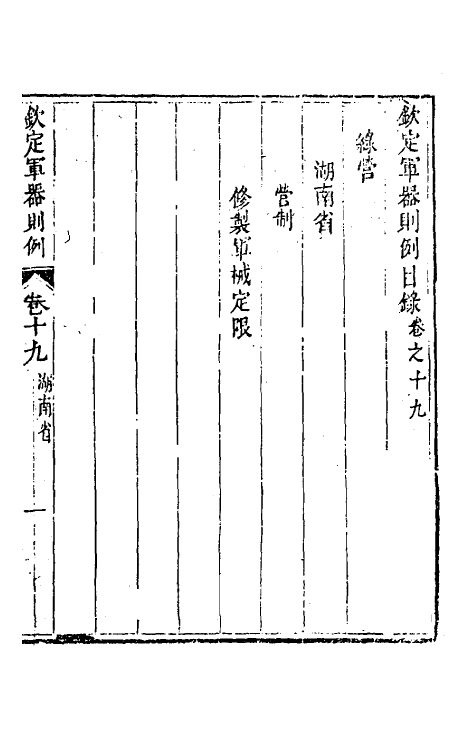 欽定軍器則例目錄卷之十九
綠營
湖南省
營制
修製軍械定限
欽定軍器則例
卷十九
湖南省
一